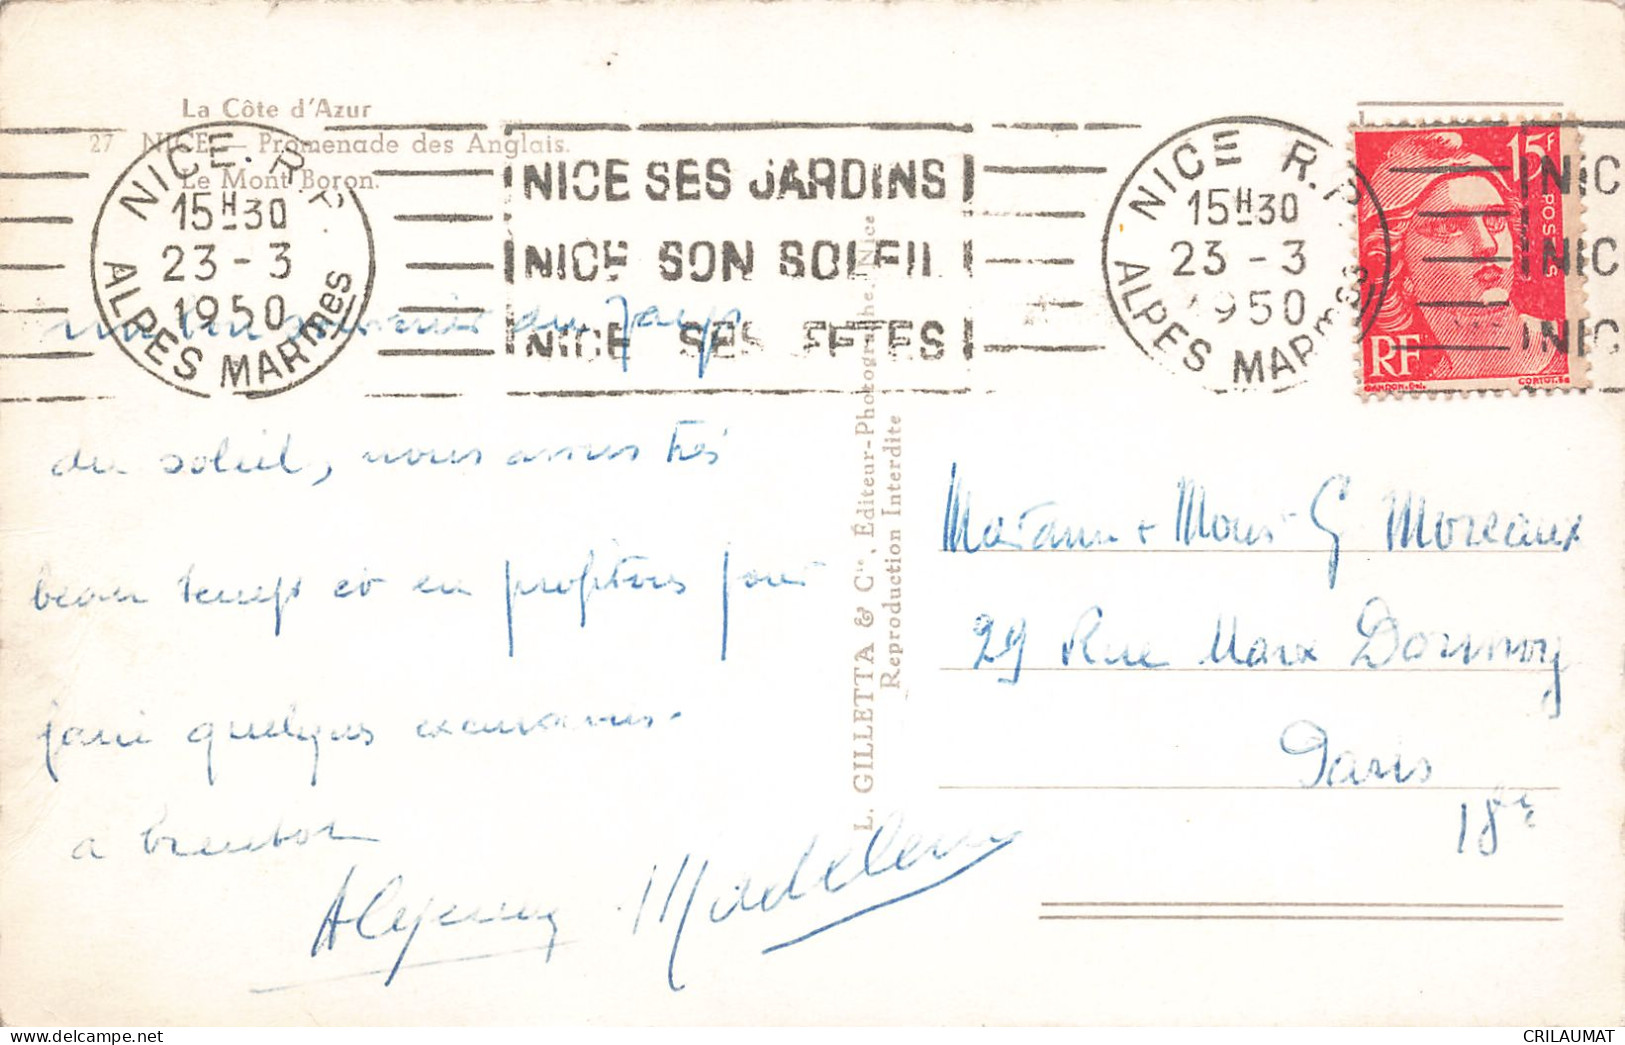 La Côte d'Azur
27 NICE — Promenade des Anglais.
Le Mont Boron.
NICE R.P.
15H30
23 - 3
1950
ALPES MARmes
NICE SES JARDINS
NICE SON SOLEIL
NICE SES FETES
NICE R.P.
15H30
23 - 3
1950
ALPES MARmes
15F
POSTES
RF
GANDON.DEL.
CORTOT.SC
NIC
NIC
NIC
un bon souvenir du Pays
du soleil, nous avons très
beau temps et en profitons pour
faire quelques excursions.
a bientot
Madeleine
L. GILLETTA & Cie, Éditeur-Photographe, Nice
Reproduction Interdite
Madame & Mons G Moreaux
29 Rue Marx Dormoy
Paris
18e
CRILAUMAT